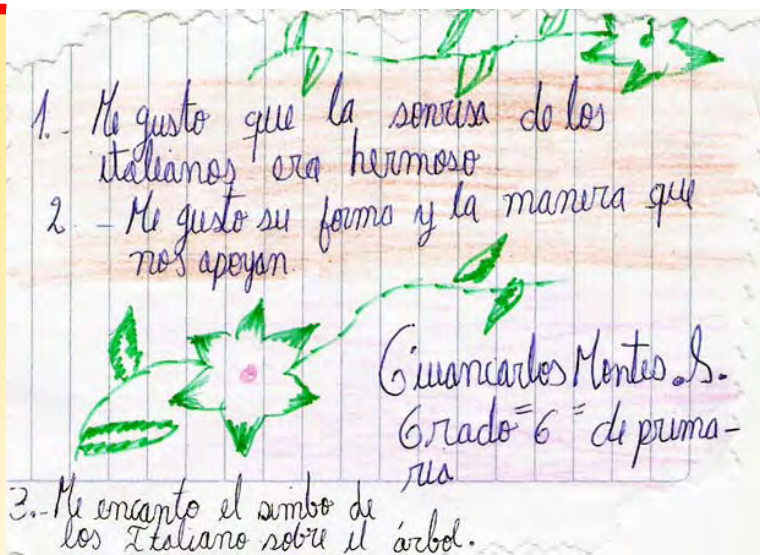 1.- Me gusto que la sonrisa de los
italianos era hermoso
2 - Me gusto su forma y la manera que
nos apoyan.
Giuancarlos Montes. S.
Grado "6" de prima-
ria
3.- Me encanto el simbo de
los Italiano sobre el árbol.